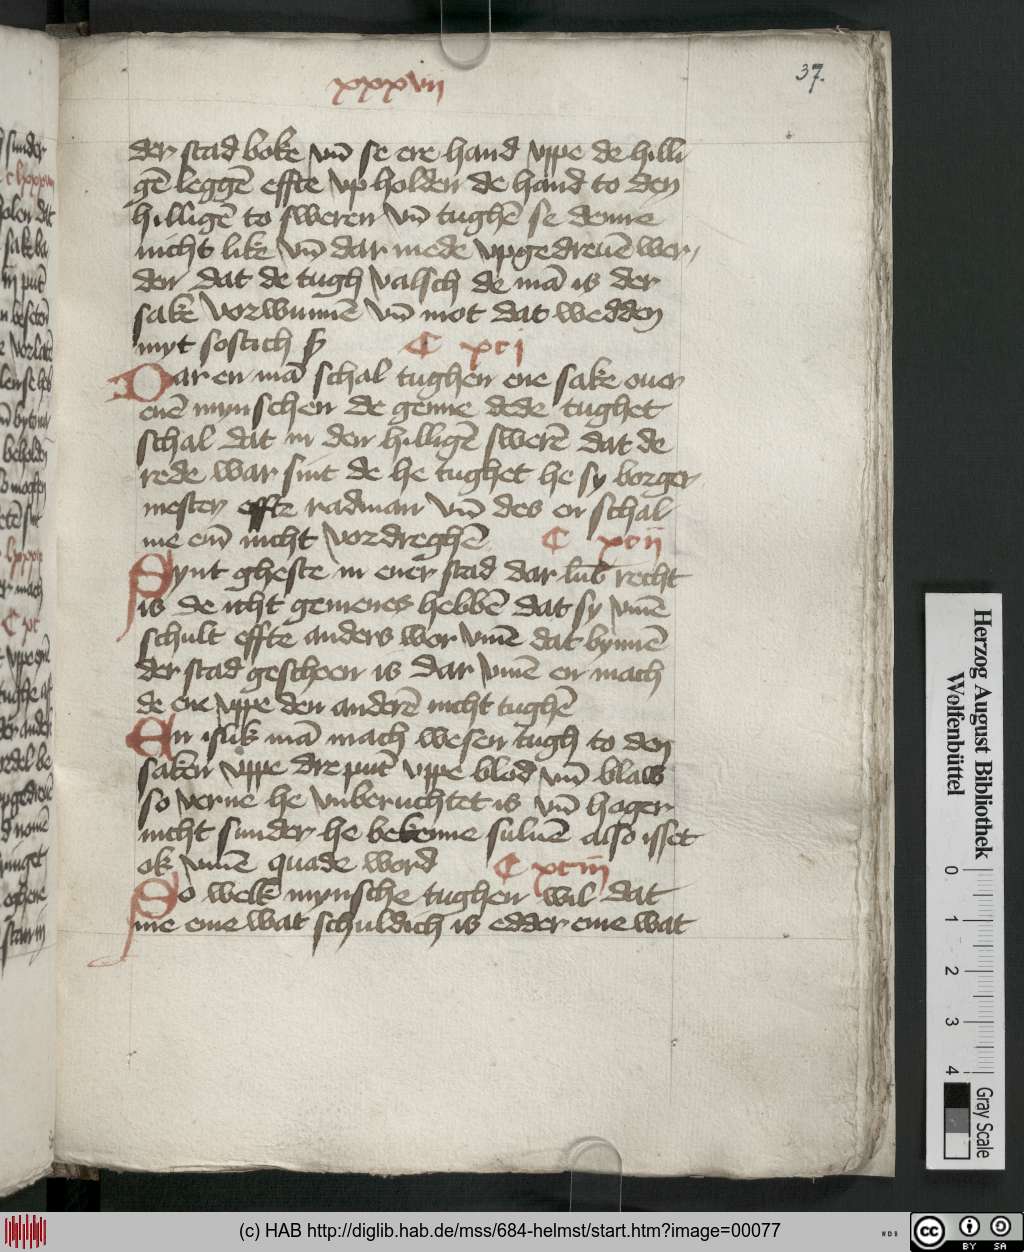 xxxvii
37.
der stad boke vn̄ se ere hand vppe de hilli
gē leggē effte vp holden de hand to den
hilligē to sweren vn̄ tughē se denne
nicht like vn̄ dar mede vpgedreuē wer,
den dat de tugh valsch de mā is der
sake vorwunnē vn̄ mot dat wedden
myt sostich ß
C xci
Dar en mā schal tughen ene sake ouer
enē mynschen de genne dede tughet
schal dat in den hilligē swerē dat de
rede war sint de he tughet he sy borger
mester effte radman vn̄ des en schal
me em̄ nicht vordreghē
C xcii
Synt gheste in ener stad dar lub̄ recht
is de icht gemenes hebbē dat sy vmē
schult effte anders wor vmē dat bynnē
der stad gescheen is dar vmē en mach
de ene vppe den anderē nicht tughē
En islik mā mach wesen tugh to den
saken vppe dre put̄ vppe blod vn̄ blaw
so verne he vnberuchtet is vn̄ hoger
nicht sunder he bekenne suluē also isset
ok vmē quade word
C xciii
So welk mynsche tughen wil dat
me eme wat schuldich is edder eme wat
Herzog August Bibliothek
Wolfenbüttel
0 1 2 3 4
Gray Scale
(c) HAB http://diglib.hab.de/mss/684-helmst/start.htm?image=00077
WDB
cc BY SA